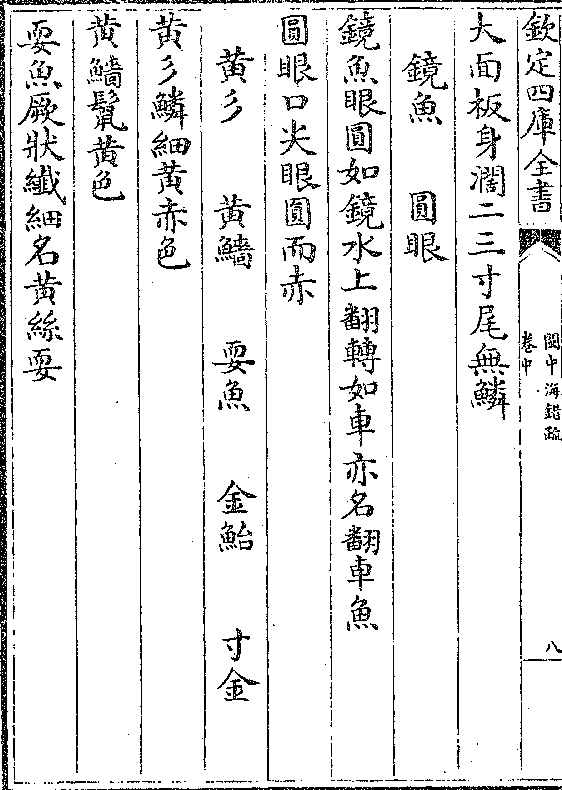 欽定四庫全書
閩中海錯疏
卷中
八
大面板身濶二三寸尾無鱗
鏡魚　圓眼
鏡魚眼圓如鏡水上翻轉如車亦名翻車魚
圓眼口尖眼圓而赤
黄彡　黄鱔　耍魚　金鮐　寸金
黄彡鱗細黄赤色
黄鱔鬛黄色
耍魚厥狀纖細名黄絲耍